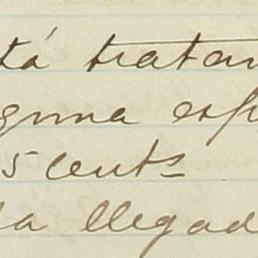 tá tratan
guna esp
5 cents
la llegad